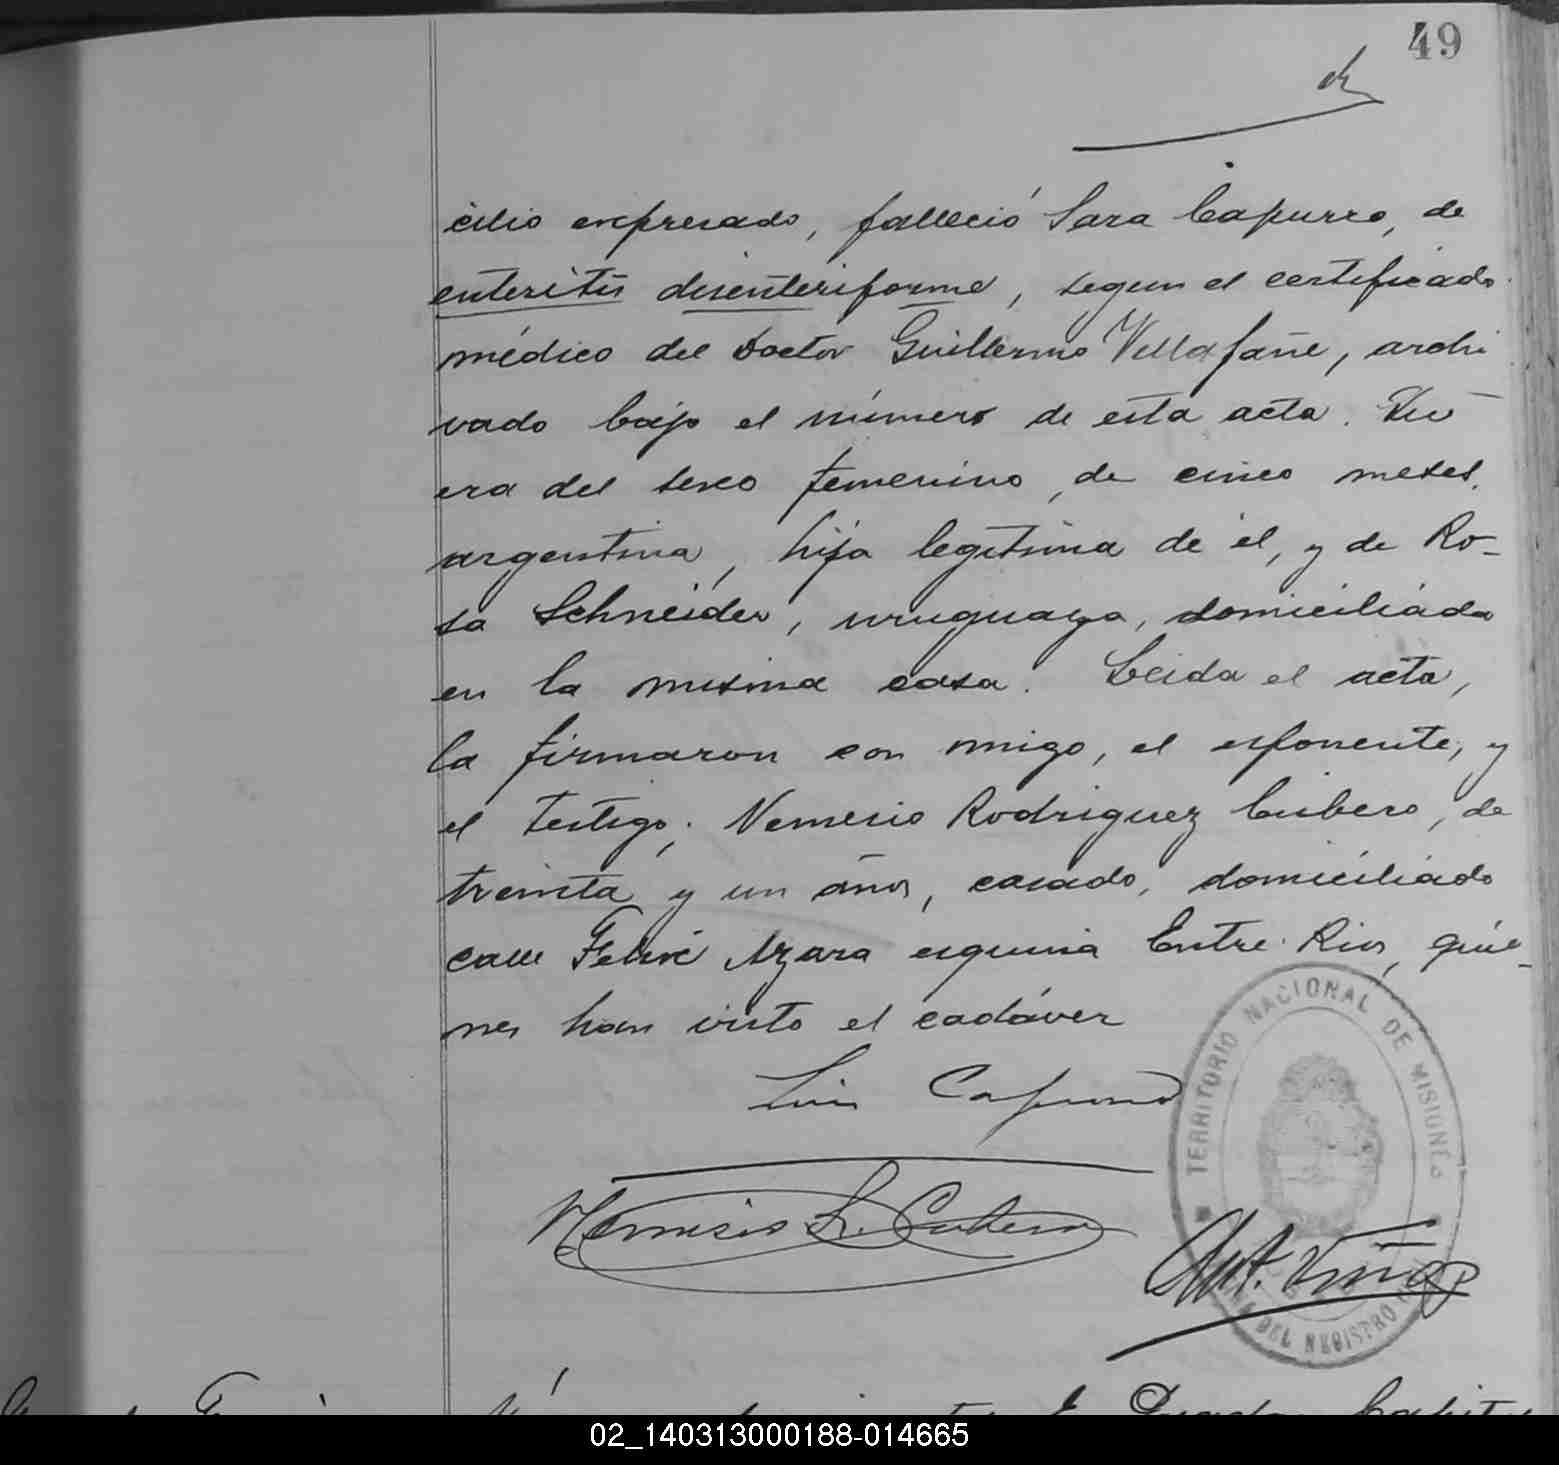 49
cilio expresado, falleció Sara Capurro, de
enteritis disenteriforme, segun el certificado
médico del Doctor Guillermo Villafañe, archi
vado bajo el número de esta acta.
era del sexo femenino, de cinco meses,
argentina, hija legítima de él, y de Ro-
sa Schneider, uruguaya, domiciliada
en la misma casa. Leida el acta,
la firmaron con migo, el esponente, y
el testigo, Nemesio Rodriguez Cubero, de
treinta y un años, casado, domiciliado
calle Felix Azara esquina Entre Rios, quie-
nes han visto el cadáver
Luis Capurro
Nemesio R. Cubero
TERRITORIO NACIONAL DE MISIONES
DEL REGISTRO
Ant. Viñas
02_140313000188-014665